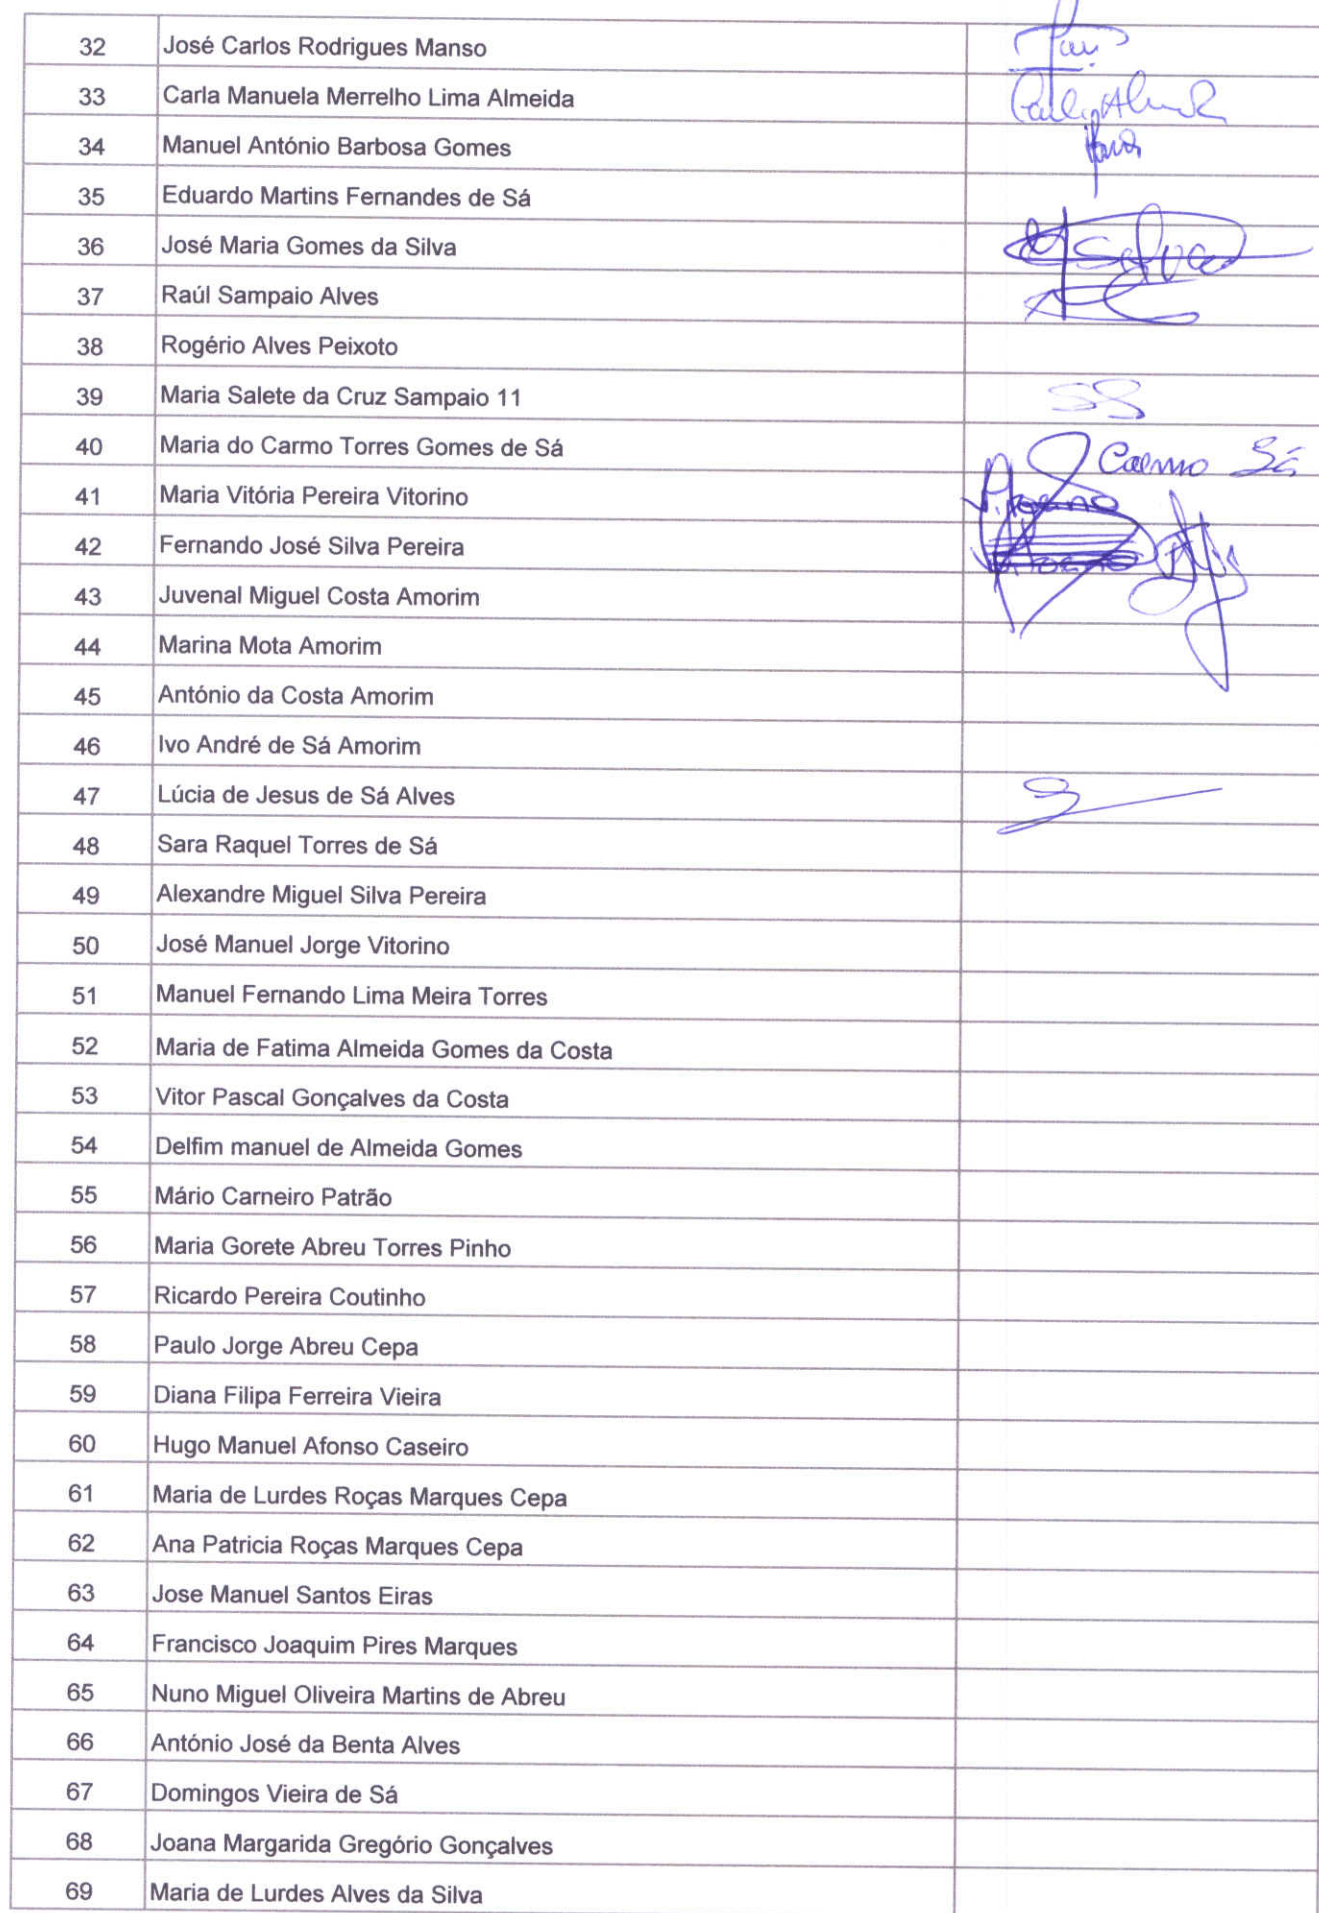 32 José Carlos Rodrigues Manso
33 Carla Manuela Merrelho Lima Almeida
34 Manuel António Barbosa Gomes
35 Eduardo Martins Fernandes de Sá
36 José Maria Gomes da Silva
37 Raúl Sampaio Alves
38 Rogério Alves Peixoto
39 Maria Salete da Cruz Sampaio 11
40 Maria do Carmo Torres Gomes de Sá Carmo Sá
41 Maria Vitória Pereira Vitorino
42 Fernando José Silva Pereira
43 Juvenal Miguel Costa Amorim
44 Marina Mota Amorim
45 António da Costa Amorim
46 Ivo André de Sá Amorim
47 Lúcia de Jesus de Sá Alves
48 Sara Raquel Torres de Sá
49 Alexandre Miguel Silva Pereira
50 José Manuel Jorge Vitorino
51 Manuel Fernando Lima Meira Torres
52 Maria de Fatima Almeida Gomes da Costa
53 Vitor Pascal Gonçalves da Costa
54 Delfim manuel de Almeida Gomes
55 Mário Carneiro Patrão
56 Maria Gorete Abreu Torres Pinho
57 Ricardo Pereira Coutinho
58 Paulo Jorge Abreu Cepa
59 Diana Filipa Ferreira Vieira
60 Hugo Manuel Afonso Caseiro
61 Maria de Lurdes Roças Marques Cepa
62 Ana Patricia Roças Marques Cepa
63 Jose Manuel Santos Eiras
64 Francisco Joaquim Pires Marques
65 Nuno Miguel Oliveira Martins de Abreu
66 António José da Benta Alves
67 Domingos Vieira de Sá
68 Joana Margarida Gregório Gonçalves
69 Maria de Lurdes Alves da Silva